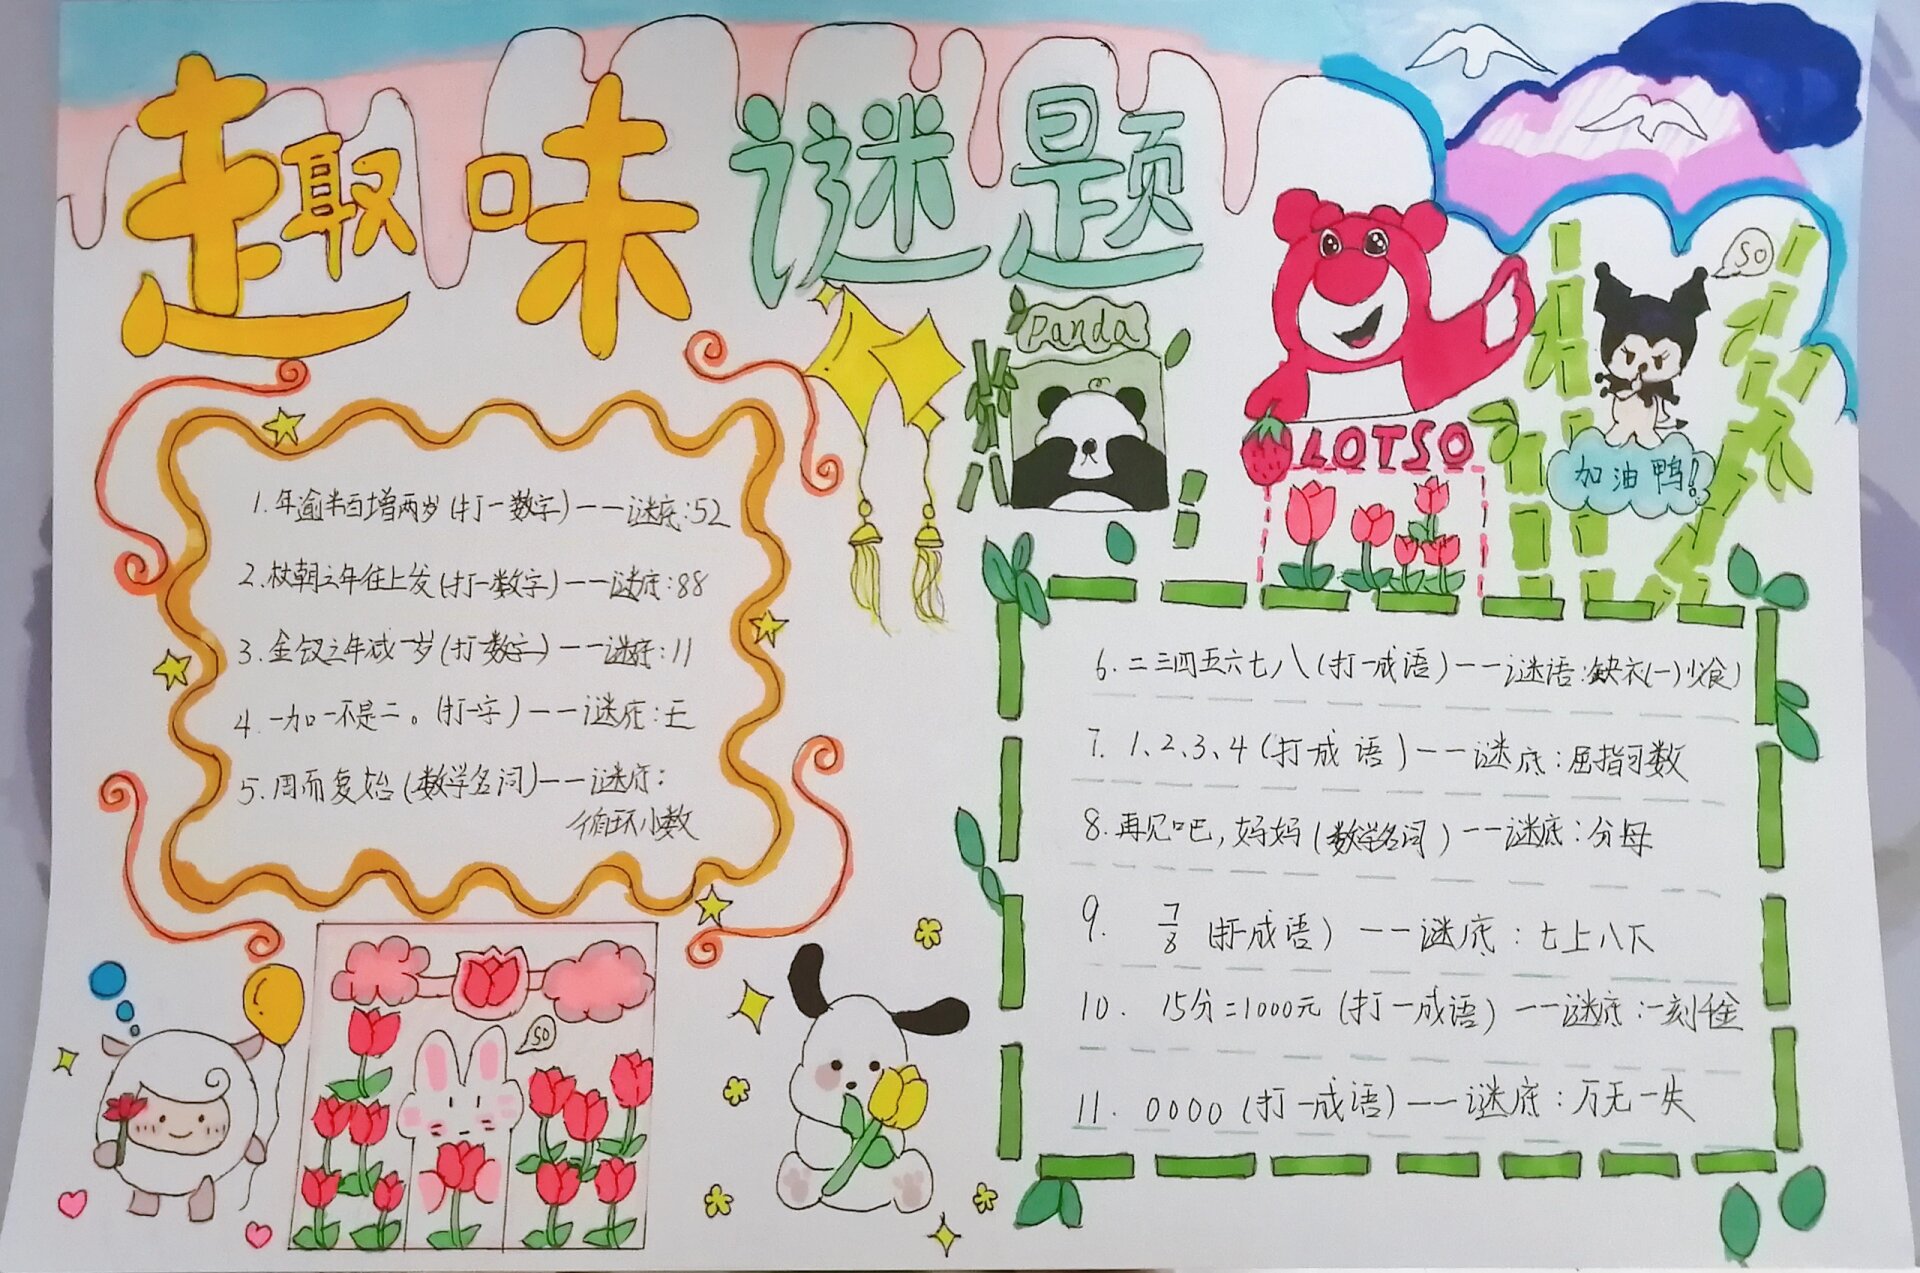 趣味谜题
Panda
LOTSO
SO
加油鸭!
1.年逾半百增两岁(打一数字)——谜底:52
2.杖朝之年往上发(打一数字)——谜底:88
3.金钗之年减一岁(打一数字)——谜底:11
4.一加一不是二。(打一字)——谜底:王
5.周而复始(数学名词)——谜底:
循环小数
6.二三四五六七八(打一成语)——谜语:缺衣(一)少食)
7.1、2、3、4(打成语)——谜底:屈指可数
8.再见吧,妈妈(数学名词)——谜底:分母
9. 7/8 (打一成语)——谜底:七上八下
10. 15分=1000元(打一成语)——谜底:一刻千金
11. 0000(打一成语)——谜底:万无一失
SO